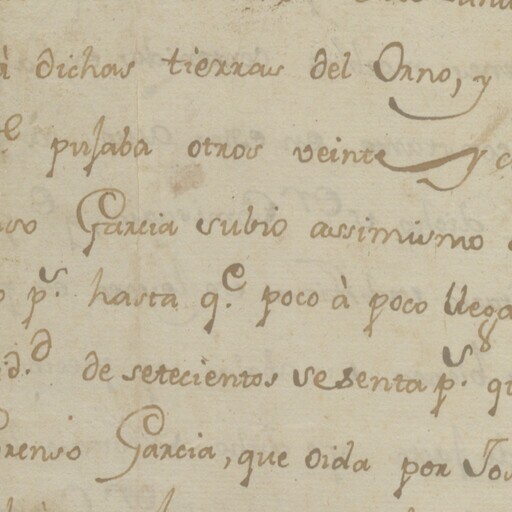 à dichas tierras del Orno, y
q.e pujaba otros veinte y c
nso Garcia subio assimismo
p.s hasta q.e poco à poco llega
d.d de setecientos sesenta p.s qu
orenso Garcia, que oida por Jos